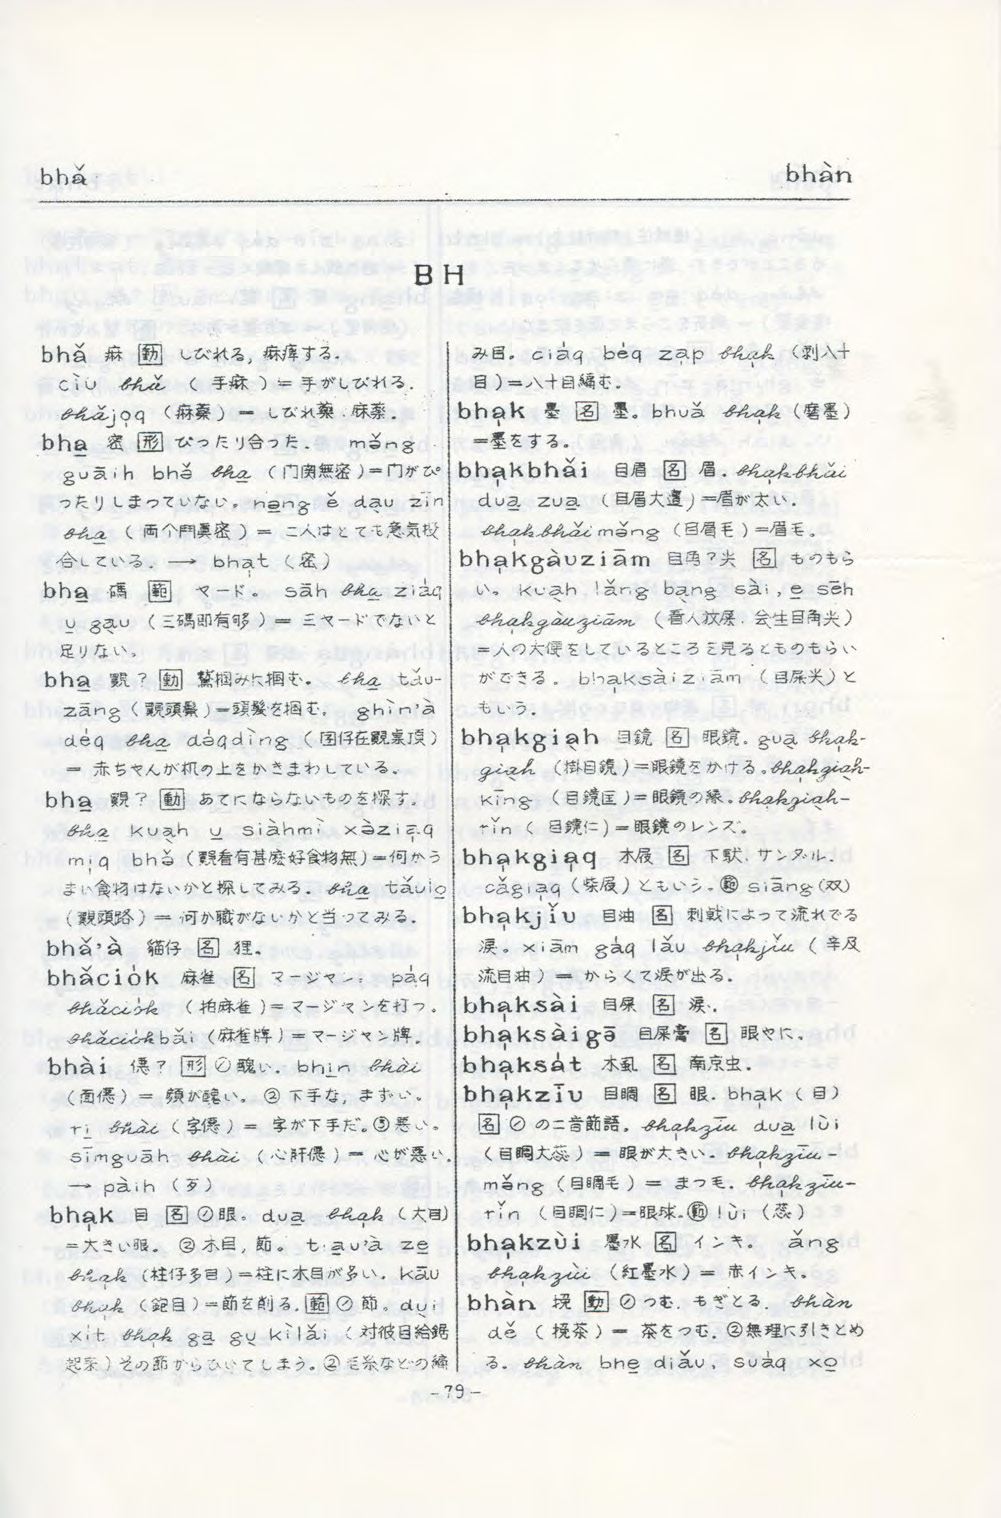 bhǎ
bhàn
BH
bhǎ 麻 [動] しびれる, 麻痺する.
cìu bhǎ ( 手麻 ) = 手がしびれる.
bhǎjọq (麻薬) = しびれ薬. 麻薬.
bha̱ 密 [形] ぴったり合った. mǎng-
guāih bhǎ bha̱ (门関無密)=门がぴ
ったりしまっていない. nạng ě dạu zīn
bha̱ (両个鬥真密) = 二人はとても意気投
合している. ─→ bhạt (密)
bha̱ 碼 [範] ヤード. sāh bha̱ ziáq
ụ gạu (三碼即有够) = 三ヤードでないと
足りない.
bha̱ 覒? [動] 鷲掴みに掴む. bha̱ tǎu-
zāng (覒頭鬃)=頭髪を掴む. ghìn'à
dėq bha̱ dȯqdìng (囝仔在覒桌頂)
= 赤ちゃんが机の上をかきまわしている.
bha̱ 覒? [動] あてにならないものを探す.
bha̱ kuạh ụ siàhmì xàziạq
mịq bhǒ (覒看有甚麽好食物無)=何かう
まい食物はないかと探してみる. bha̱ tǎulo
(覒頭路) = 何か職がないかと当ってみる.
bhǎ'à 貓仔 [名] 狸.
bhǎciȯk 麻雀 [名] マージャン. pȧq
bhǎciȯk (拍麻雀)= マージャンを打つ.
bhǎciȯkbǎi (麻雀牌) = マージャン牌.
bhài 僫? [形] ①醜い. bhịn bhài
(面僫) = 顔が醜い. ②下手な. まずい.
rị bhài (字僫) = 字が下手だ. ③悪い.
sīmguāh bhài (心肝僫) = 心が悪い.
─→ pàih (歹)
bhạk 目 [名] ①眼. dua̱ bhạk (大目)
=大きい眼. ②木目, 節. tiau'à ze
bhạk (柱仔多目)=柱に木目が多い. kāu
bhạk (鉋目)=節を削る. [範] ①節. dụi
xit bhạk gạ gụ kìlǎi (対彼目給鋸
起来) その節からひいてしまう. ②毛糸などの編
み目. ciȧq bėq zạp bhạk (刺八十
目)=八十目編む.
bhạk 墨 [名] 墨. bhuǎ bhạk (磨墨)
=墨をする.
bhạkbhǎi 目眉 [名] 眉. bhạkbhǎi
dua̱ zua̱ (目眉大逪)=眉が太い.
bhạkbhǎimǎng (目眉毛)=眉毛.
bhạkgàuziām 目角?尖 [名] ものもら
い. kuạh lǎng bạng sài, e̱ sēh
bhạkgàuziām (看人放屎, 会生目角尖)
=人の大便をしているところを見るとものもらい
ができる. bhạksàiziām (目屎尖)と
もいう.
bhạkgiạh 目鏡 [名] 眼鏡. gua̱ bhạk-
giạh (掛目鏡)=眼鏡をかける. bhạkgiạh-
kīng (目鏡匡)=眼鏡の縁. bhạkgiạh-
rǐn (目鏡仁)=眼鏡のレンズ.
bhạkgiạq 木屐 [名] 下駄. サンダル.
cǎgiạq (柴屐) ともいう. [範] siāng (双)
bhạkjǐu 目油 [名] 刺戟によって流れでる
涙. xiām gȧq lǎu bhạkjǐu (辛及
流目油) = からくて涙が出る.
bhạksài 目屎 [名] 涙.
bhạksàigō 目屎膏 [名] 眼やに.
bhạksȧt 木虱 [名] 南京虫.
bhạkzīu 目睭 [名] 眼. bhạk (目)
[名] ① の二音節語. bhạkzīu dua̱ lùi
(目睭大蕊) = 眼が大きい. bhạkzīu-
mǎng (目睭毛) = まつ毛. bhạkzīu-
rǐn (目睭仁)=眼球. [範] lùi (蕊)
bhạkzùi 墨水 [名] インキ. ǎng
bhạkzùi (紅墨水) = 赤インキ.
bhàn 挽 [動] ①つむ. もぎとる. bhàn
dě (挽茶) = 茶をつむ. ②無理に引きとめ
る. bhàn bhe̱ diǎu, suȧq xo̱
-79-